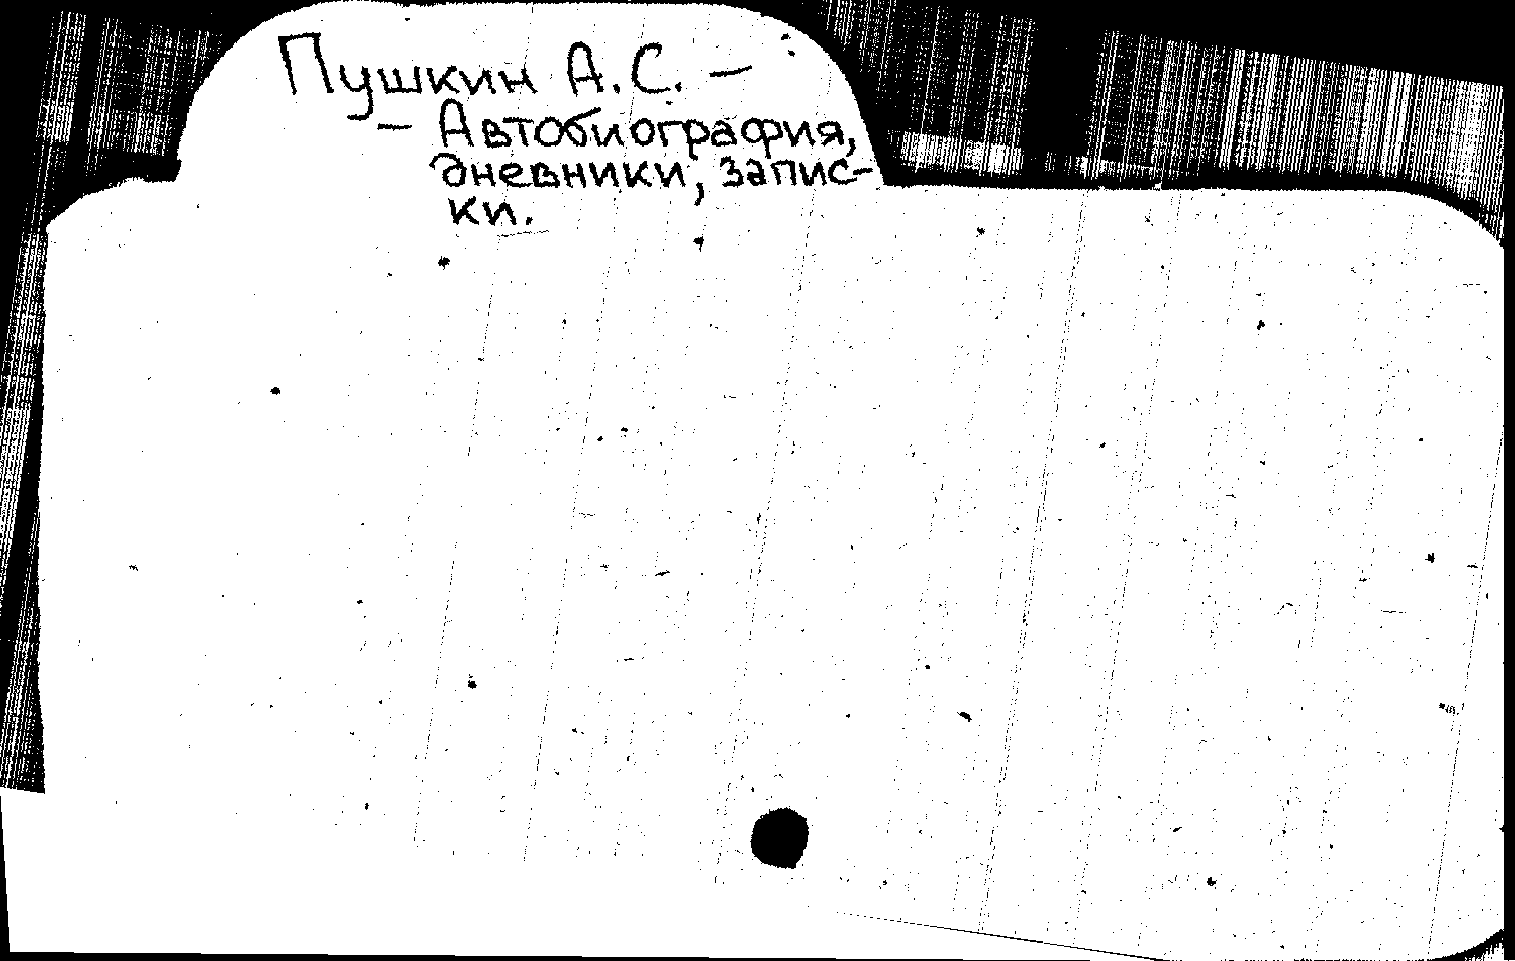 Пушкин А.С. —
— Автобиография,
дневники, запис-
ки.